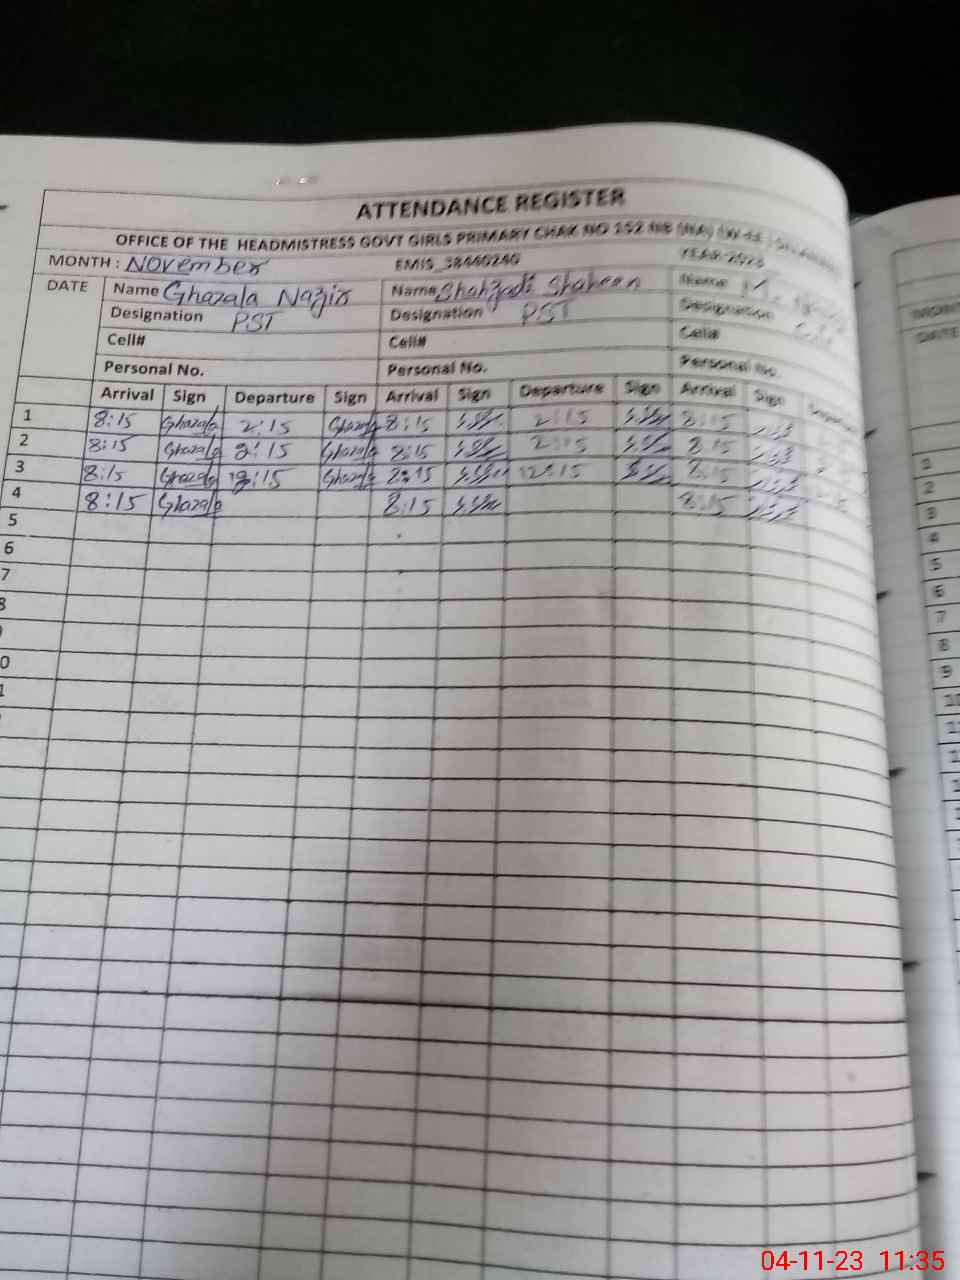 ATTENDANCE REGISTER
OFFICE OF THE HEADMISTRESS GOVT GIRLS PRIMARY CHAK NO 152 NB
MONTH : November EMIS_38440240 YEAR 2023
DATE Name Ghazala Nazir Name Shahzadi Shaheen Name
Designation PST Designation PST Designation
Cell# Cell# Cell#
Personal No. Personal No. Personal No.
Arrival Sign Departure Sign Arrival Sign Departure Sign Arrival Sign
1 8:15 Ghazala 2:15 Ghazala 8:15 2:15 8:15
2 8:15 Ghazala 2:15 Ghazala 8:15 2:15 8:15
3 8:15 Ghazala 12:15 Ghazala 8:15 12:15 8:15
4 8:15 Ghazala 8:15 8:15
5
6
7
8
DATE
1
2
3
4
5
6
7
8
9
04-11-23 11:35